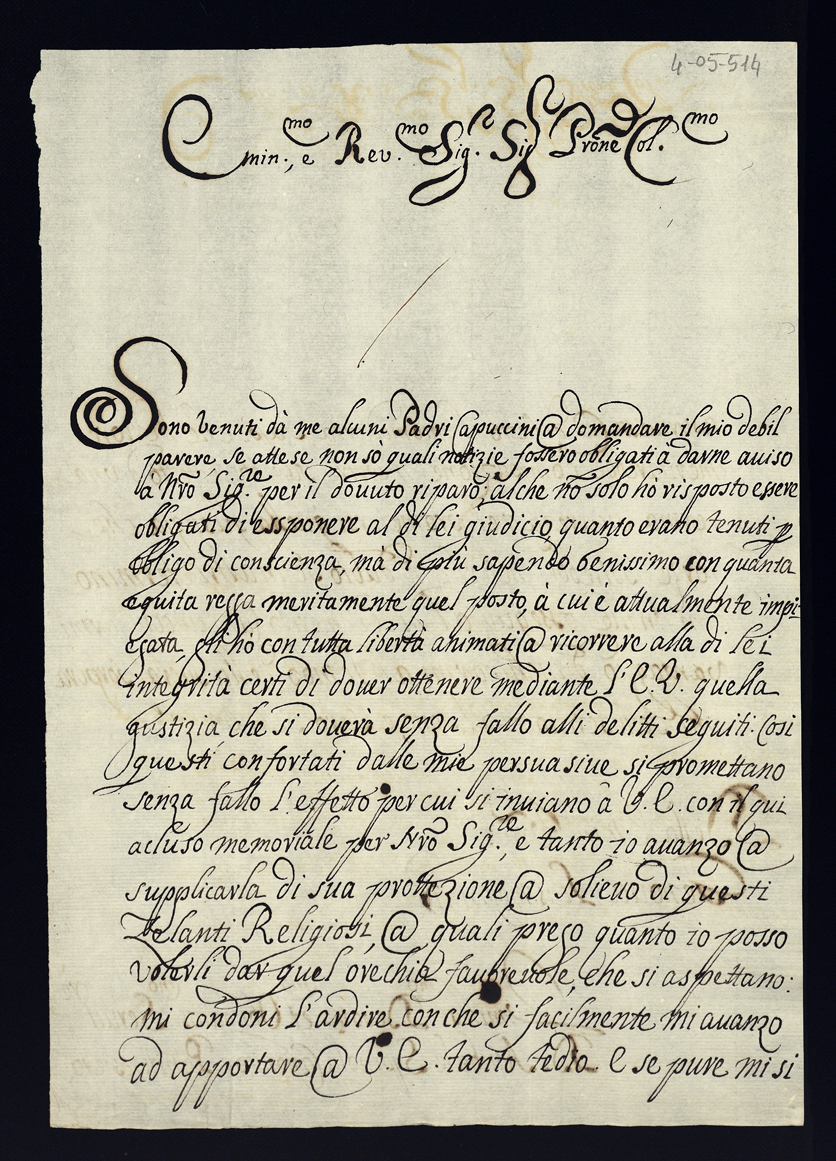 4-05-514
Emin.mo, e Rev.mo Sig.r Sig.r Prōne Col.mo
Sono venuti dà me alcuni Padri Capuccini @ domandare il mio debil
parere, se attese non sò quali notizie fossero obligati à darne auiso
à Nrō Sig.re per il douuto riparo; alche nō solo hò risposto essere
obligati di essponere al di lei giudicio quanto erano tenuti p
obligo di conscienza, mà di più sapendo benissimo con quanta
equita regga meritamente quel posto, à cui é attualmente impi-
egata, gli hò con tutta libertà animati @ ricorrere alla di lei
integrità certi di douer ottenere mediante l'E. V. quella
giustizia che si douerà senza fallo alli delitti seguiti. Cosi
questi confortati dalle mie persuasiue si promettano
senza fallo l'effetto per cui si inuiano à V. E. con il qui
acluso memoriale per Nrō Sig.re, e tanto io auanzo @
supplicarla di sua prottezione @ solieuo di questi
Zelanti Religiosi, @ quali prego quanto io posso
volerli dar quel orechia fauoreuole, che si aspettano:
mi condoni l'ardire con che si facilmente mi auanzo
ad apportare @ V. E. tanto tedio. E se pure mi si